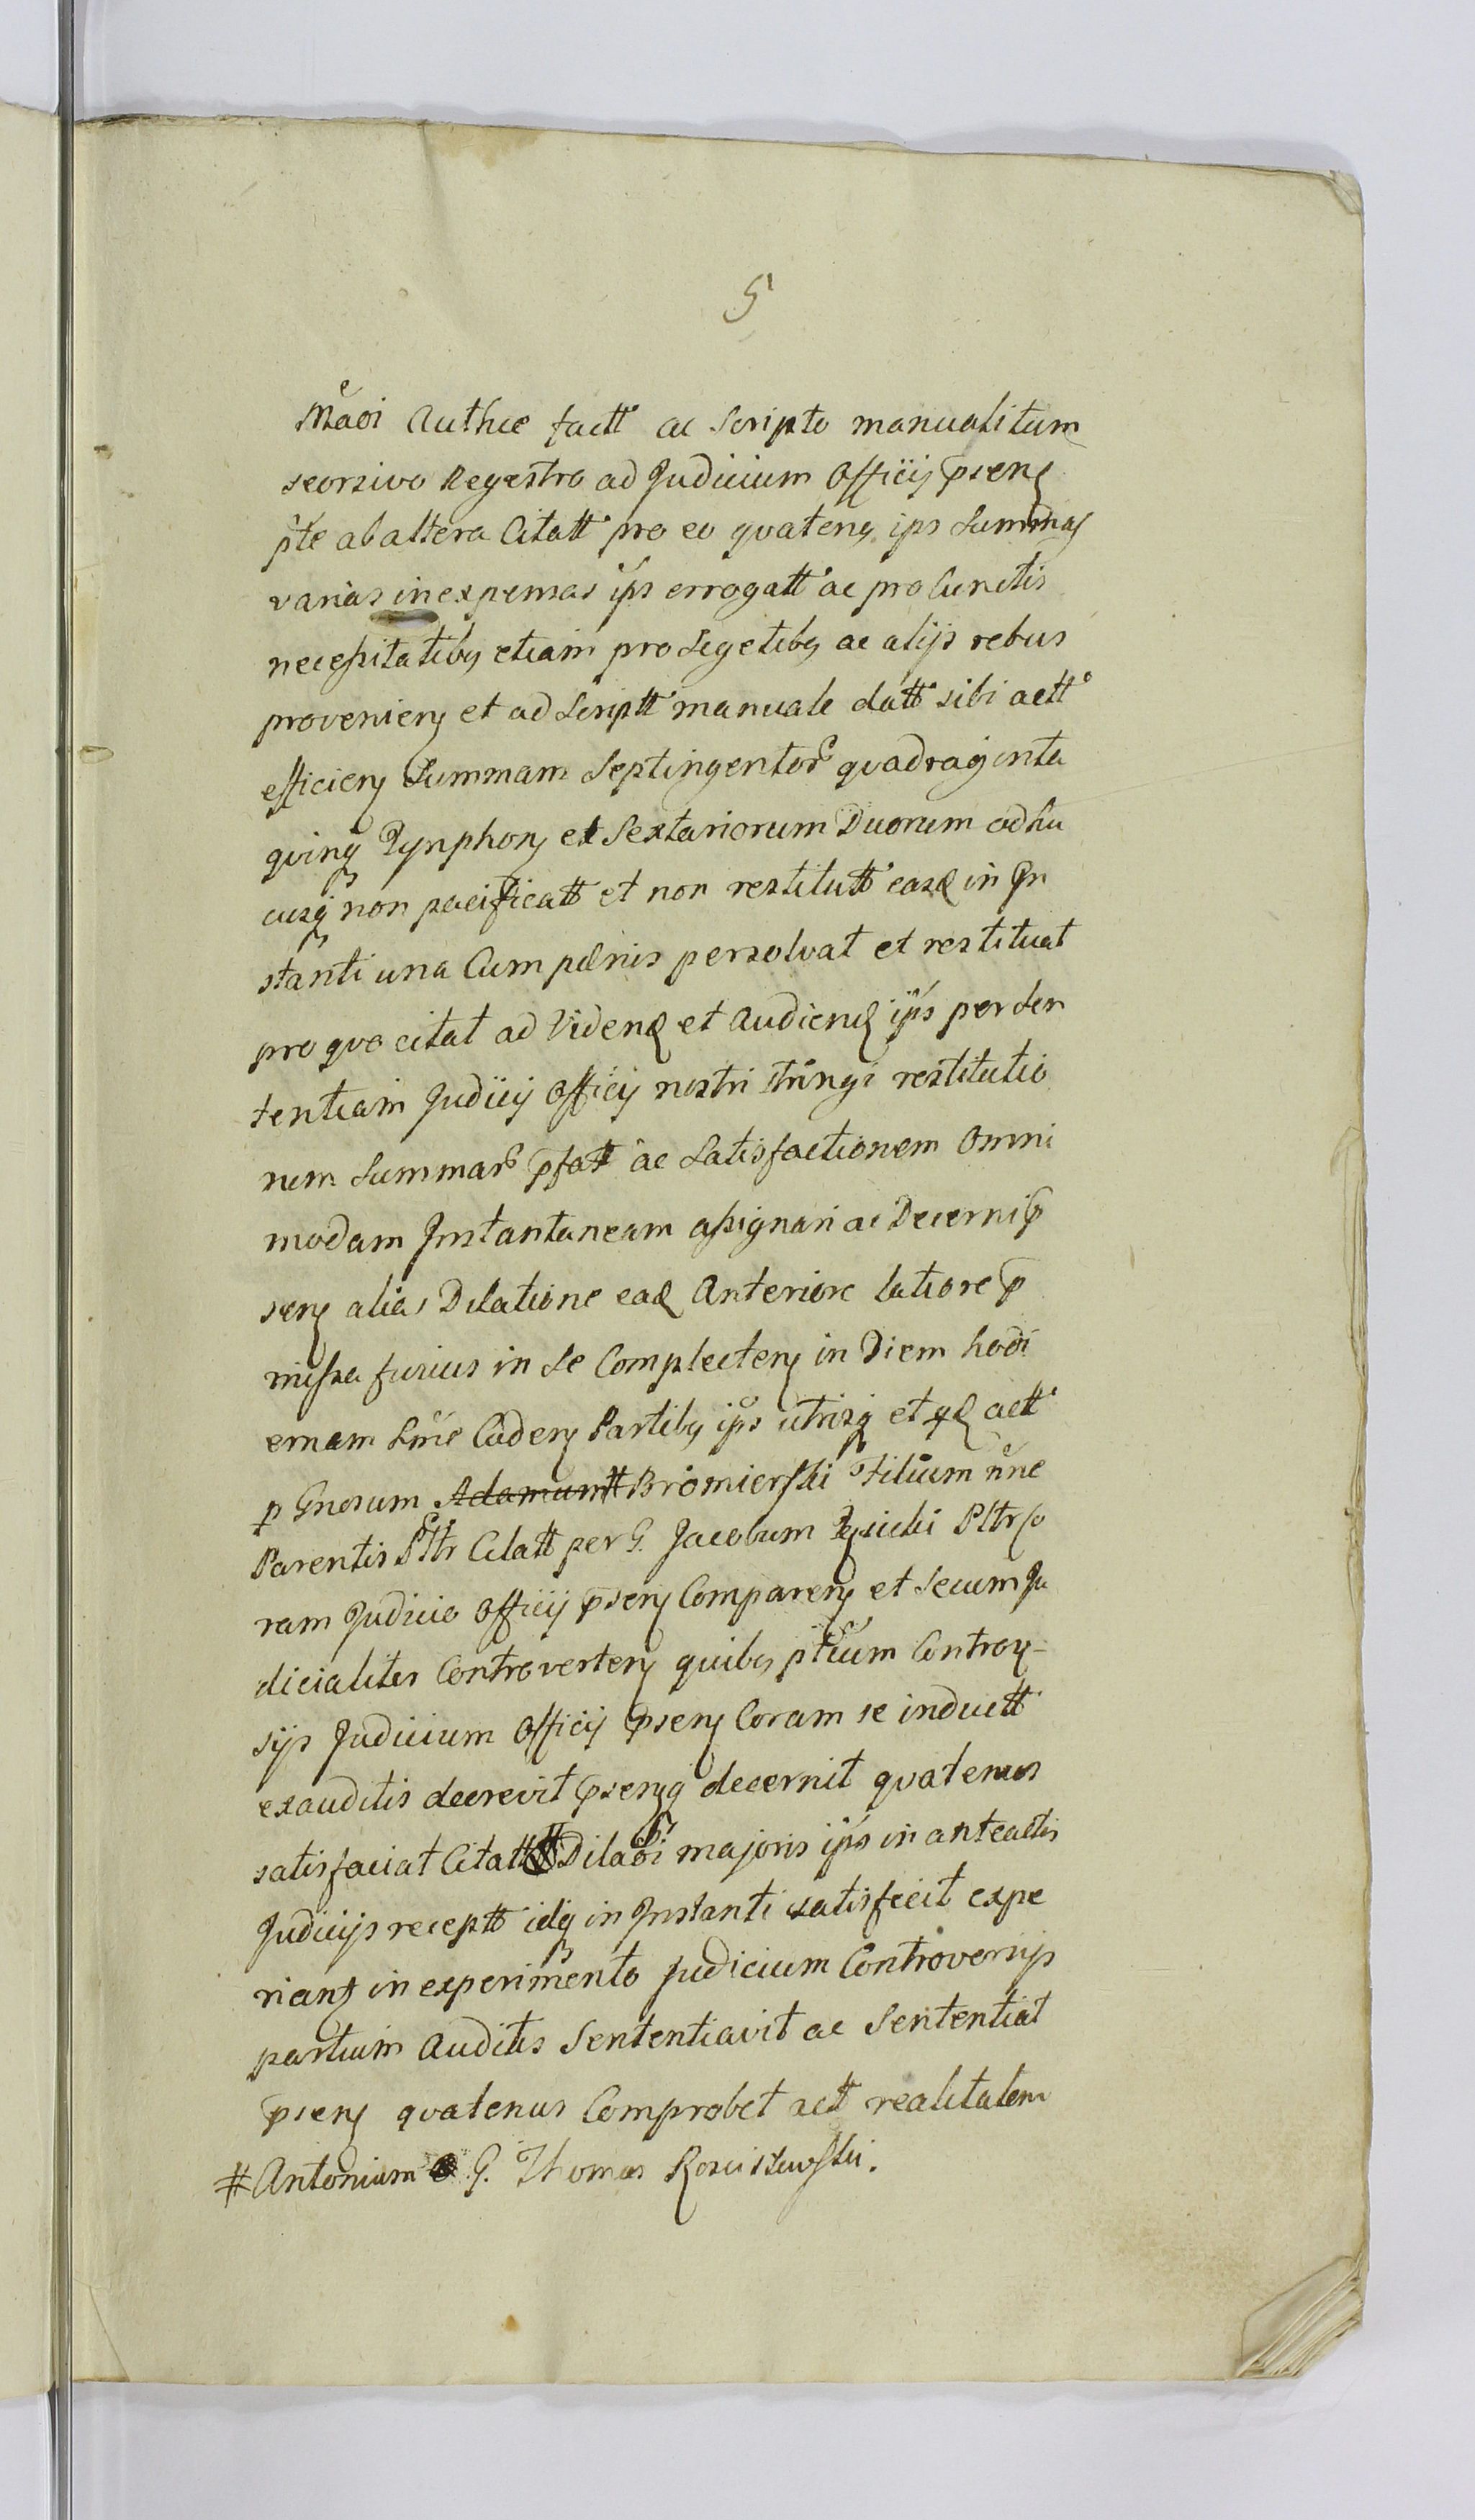 5
Mãoi Authce factt ac Scripto manualitum
seorsivo Regestro ad Judicium Officij p̃seng
pte ab altera Citatt pro eo quateng ips Summas
varias in expensas ips errogatt ac pro Cunctis
necessitatibg etiam pro Segetibg ac alijs rebus
provenieng et ad Scriptt manuale datt sibi actt
efficieng Summam Septingentor quadraginta
quinq Tynphong et Sextariorum Duorum adhu
cusq non pacificatt et non restitutt easd in In
stanti una Cum pœnis persolvat et restituat
pro quo citat ad Vidend et Audiend ips per Sen
tentiam Judicij Officij nostri stringi restitutio
nem Summar p̃fatt ac Satisfactionem Omni
modam Instantaneam assignari ac Decerni p̃
seng alias Dilatione ead Anteriore latiore p̃
missa fusius in Se Complecteng in Diem hodi
ernam Cadeng Partibg ips utrisq et qd actt
p Gnosum Adamum # Bromierski Filium nne
Parentis Citatt per G. Jacobum Pltr Co
ram Judicio Officij p̃seng Compareng et Secum Ju
dicialiter Controverteng quibg ptium Controv-
sijs Judicium Officij p̃seng Coram se inductt
exauditis decrevit p̃sengq decernit quatenus
satisfaciat Citatt Dilaoi majoris ips in anteactis
Judicijs receptt idq in Instanti satisfecit expe
riang in experimento Judicium Controversijs
partium Auditis Sententiavit ac Sententiat
p̃seng quatenus Comprobet actt realitatem
# Antonium G. Thomas Rosciszewski.